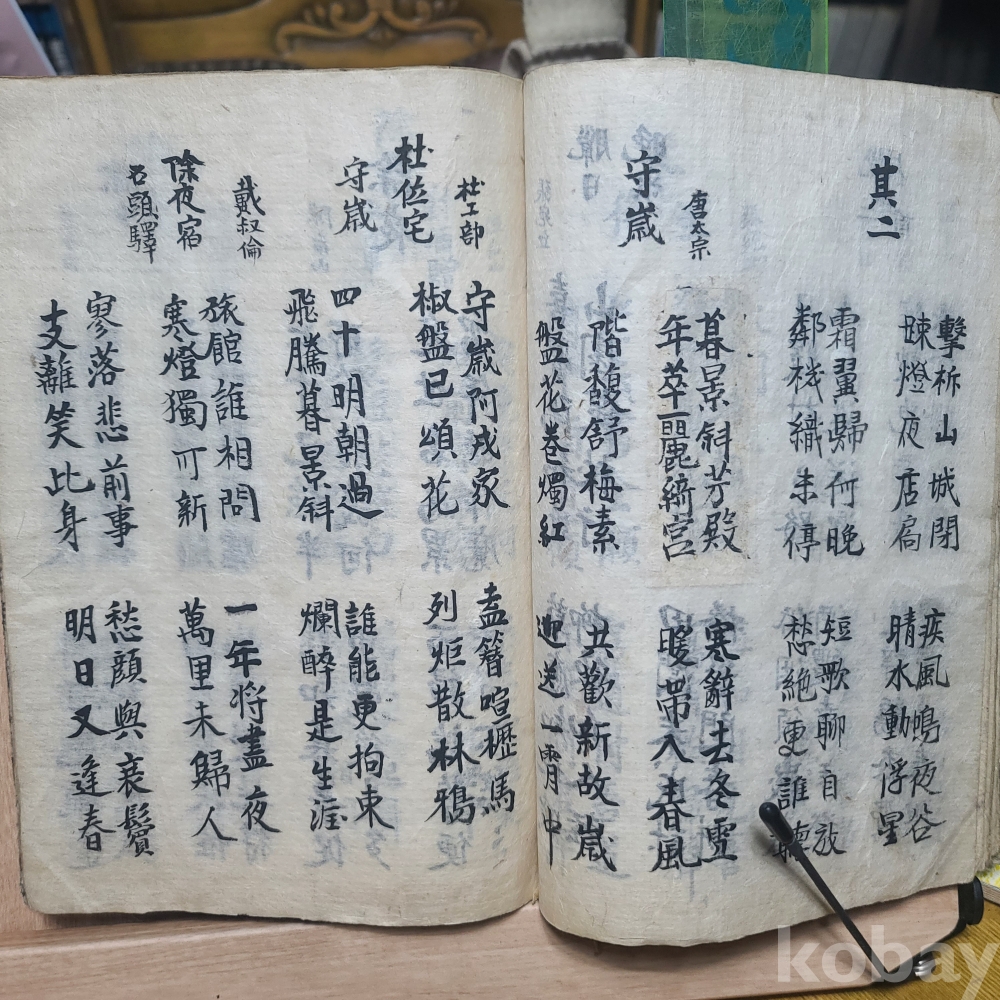 其二
擊柝山城閉
疎燈夜店扃
疾風鳴夜谷
晴水動浮星
霜翼歸何晚
鄰機織未停
短歌聊自放
愁絶更誰聽
守歲
唐太宗
暮景斜芳殿
年華麗綺宮
寒辭去冬雪
暖帶入春風
階馥舒梅素
盤花卷燭紅
共歡新故歲
迎送一宵中
杜工部
杜位宅
守歲
守歲阿戎家
椒盤已頌花
盍簪喧櫪馬
列炬散林鴉
四十明朝過
飛騰暮景斜
誰能更拘束
爛醉是生涯
戴叔倫
除夜宿
石頭驛
旅館誰相問
寒燈獨可新
一年將盡夜
萬里未歸人
寥落悲前事
支離笑此身
愁顔與衰鬢
明日又逢春
kobay